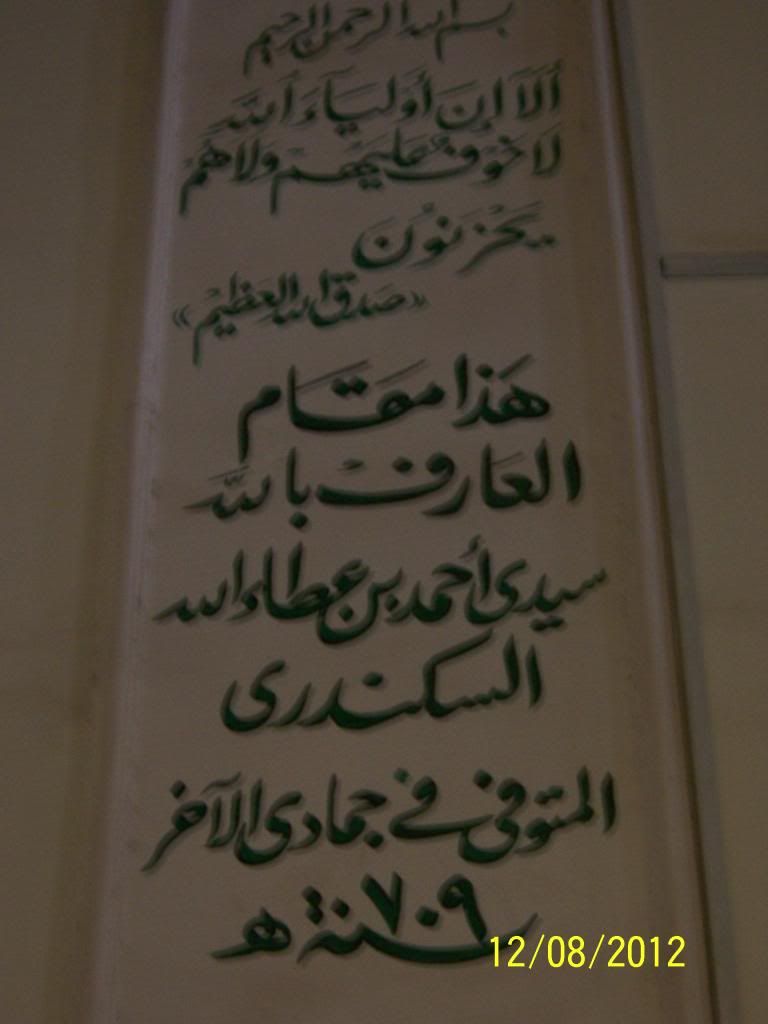 بسم الله الرحمن الرحيم
ألآ إن أوليآء الله
لا خوف عليهم ولا هم
يحزنون
«صدق الله العظيم»
هذا مقام
العارف بالله
سيدى أحمد بن عطاء الله
السكندرى
المتوفى فى جمادى الآخر
سنة ٧٠٩ هـ
12/08/2012